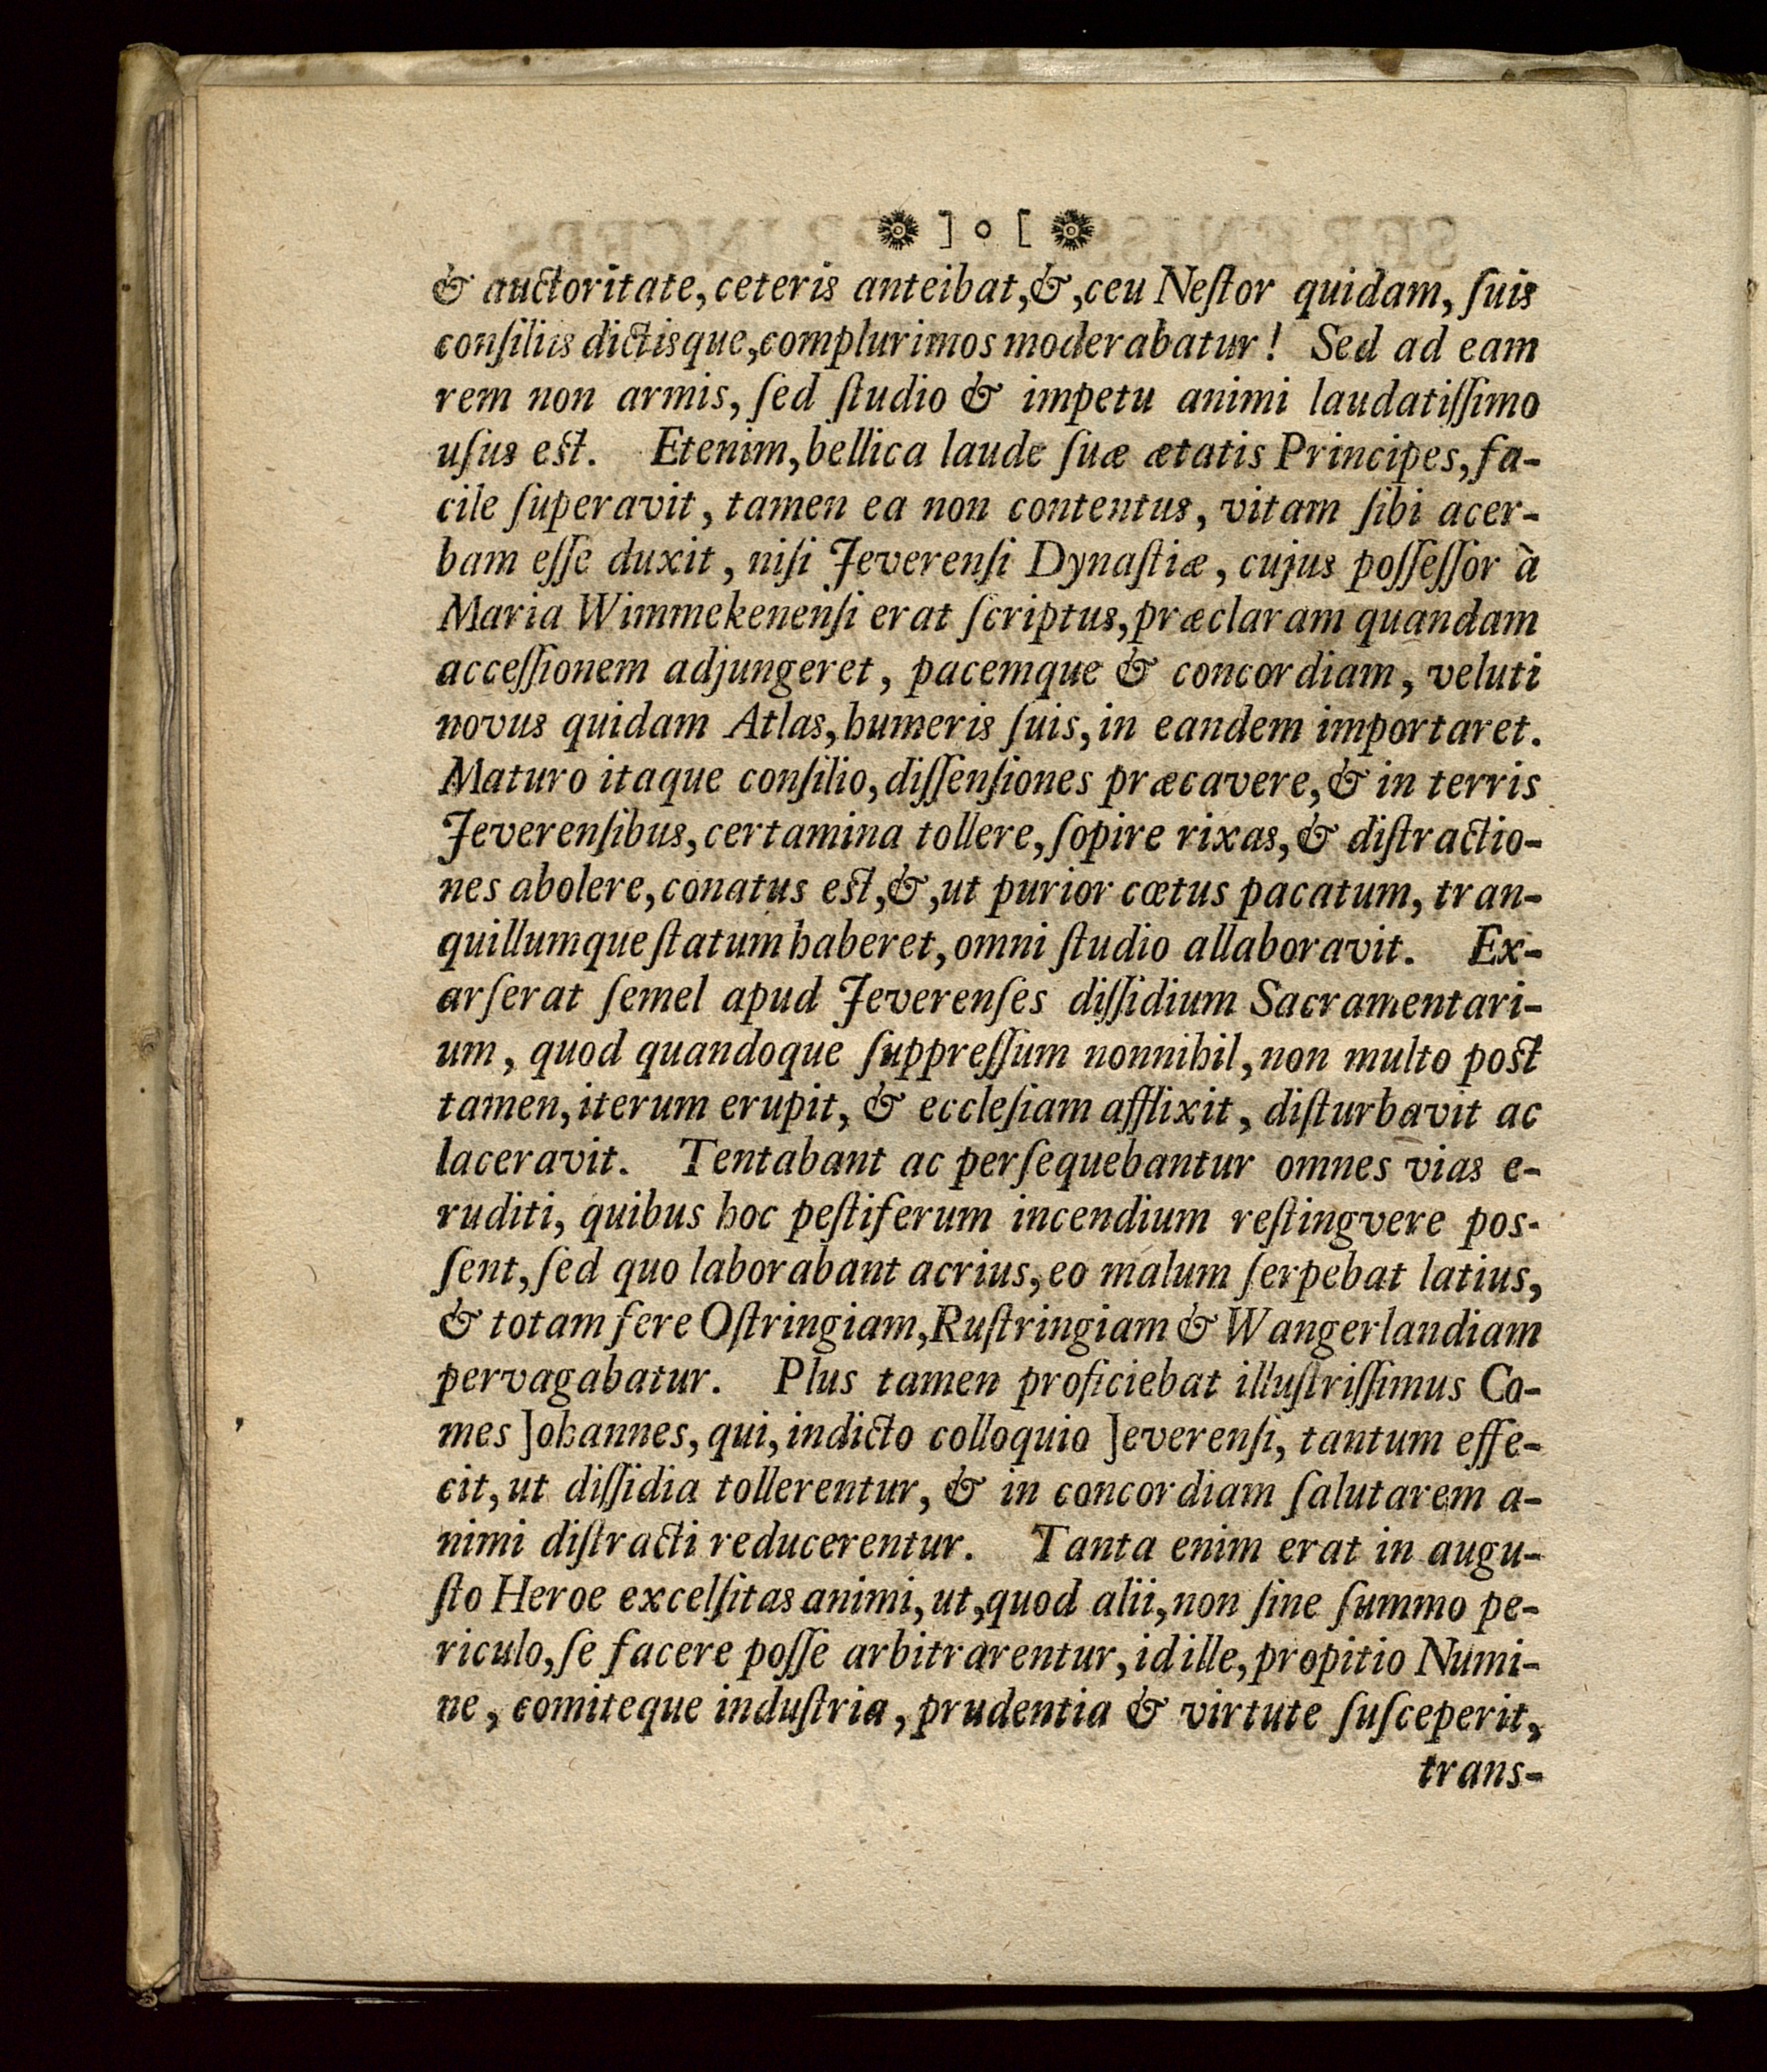 ] o [
& auctoritate, ceteris anteibat, &, ceu Neſtor quidam, ſuis
conſiliis dictisque, complurimos moderabatur! Sed ad eam
rem non armis, ſed ſtudio & impetu animi laudatiſſimo
uſus eſt. Etenim, bellica laude ſuæ ætatis Principes, fa-
cile ſuperavit, tamen ea non contentus, vitam ſibi acer-
bam eſſe duxit, niſi Jeverenſi Dynaſtiæ, cujus poſſeſſor à
Maria Wimmekenenſi erat ſcriptus, præclaram quandam
acceſſionem adjungeret, pacemque & concordiam, veluti
novus quidam Atlas, humeris ſuis, in eandem importaret.
Maturo itaque conſilio, diſſenſiones præcavere, & in terris
Jeverenſibus, certamina tollere, ſopire rixas, & diſtractio-
nes abolere, conatus eſt, &, ut purior cœtus pacatum, tran-
quillumque ſtatum haberet, omni ſtudio allaboravit. Ex-
arſerat ſemel apud Jeverenſes diſſidium Sacramentari-
um, quod quandoque ſuppreſſum nonnihil, non multo poſt
tamen, iterum erupit, & eccleſiam afflixit, diſturbavit ac
laceravit. Tentabant ac perſequebantur omnes vias e-
ruditi, quibus hoc peſtiferum incendium reſtingvere pos-
ſent, ſed quo laborabant acrius, eo malum ſerpebat latius,
& totam fere Oſtringiam, Ruſtringiam & Wangerlandiam
pervagabatur. Plus tamen proficiebat illuſtriſſimus Co-
mes Johannes, qui, indicto colloquio Jeverenſi, tantum effe-
cit, ut diſſidia tollerentur, & in concordiam ſalutarem a-
nimi diſtracti reducerentur. Tanta enim erat in augu-
ſto Heroe excelſitas animi, ut, quod alii, non ſine ſummo pe-
riculo, ſe facere poſſe arbitrarentur, id ille, propitio Numi-
ne, comiteque induſtria, prudentia & virtute ſuſceperit,
trans-